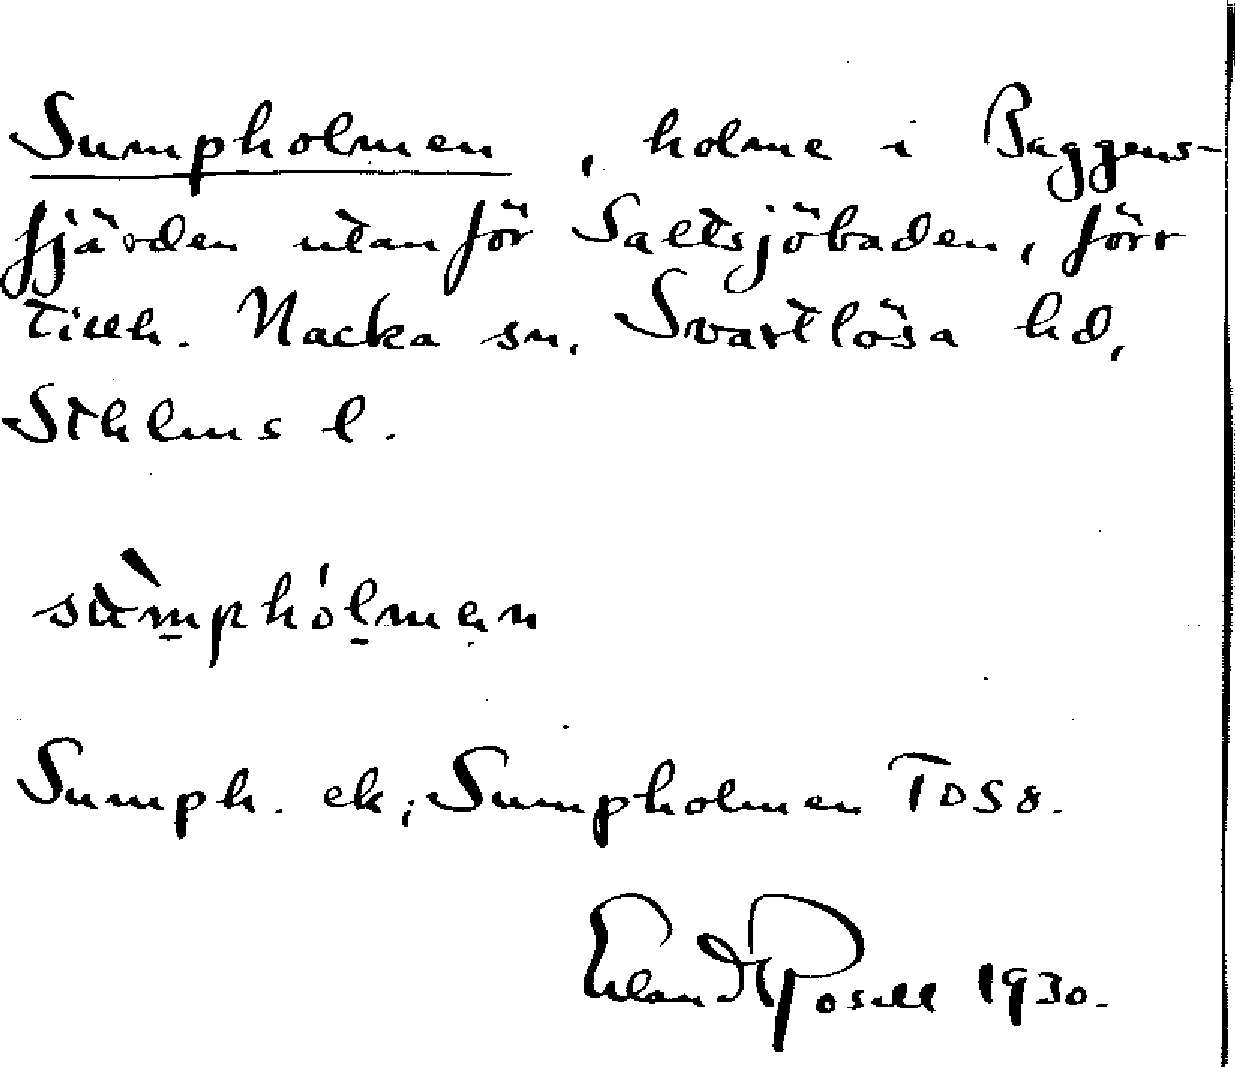 Sumpholmen, holme i Baggens-
fjärden utanför Saltsjöbaden, förr
tillh. Nacka sn, Svartlösa hd,
Sthlms l.
sùmphólmen
Sumph. ek; Sumpholmen TDS8.
Erland Rosell 1930.